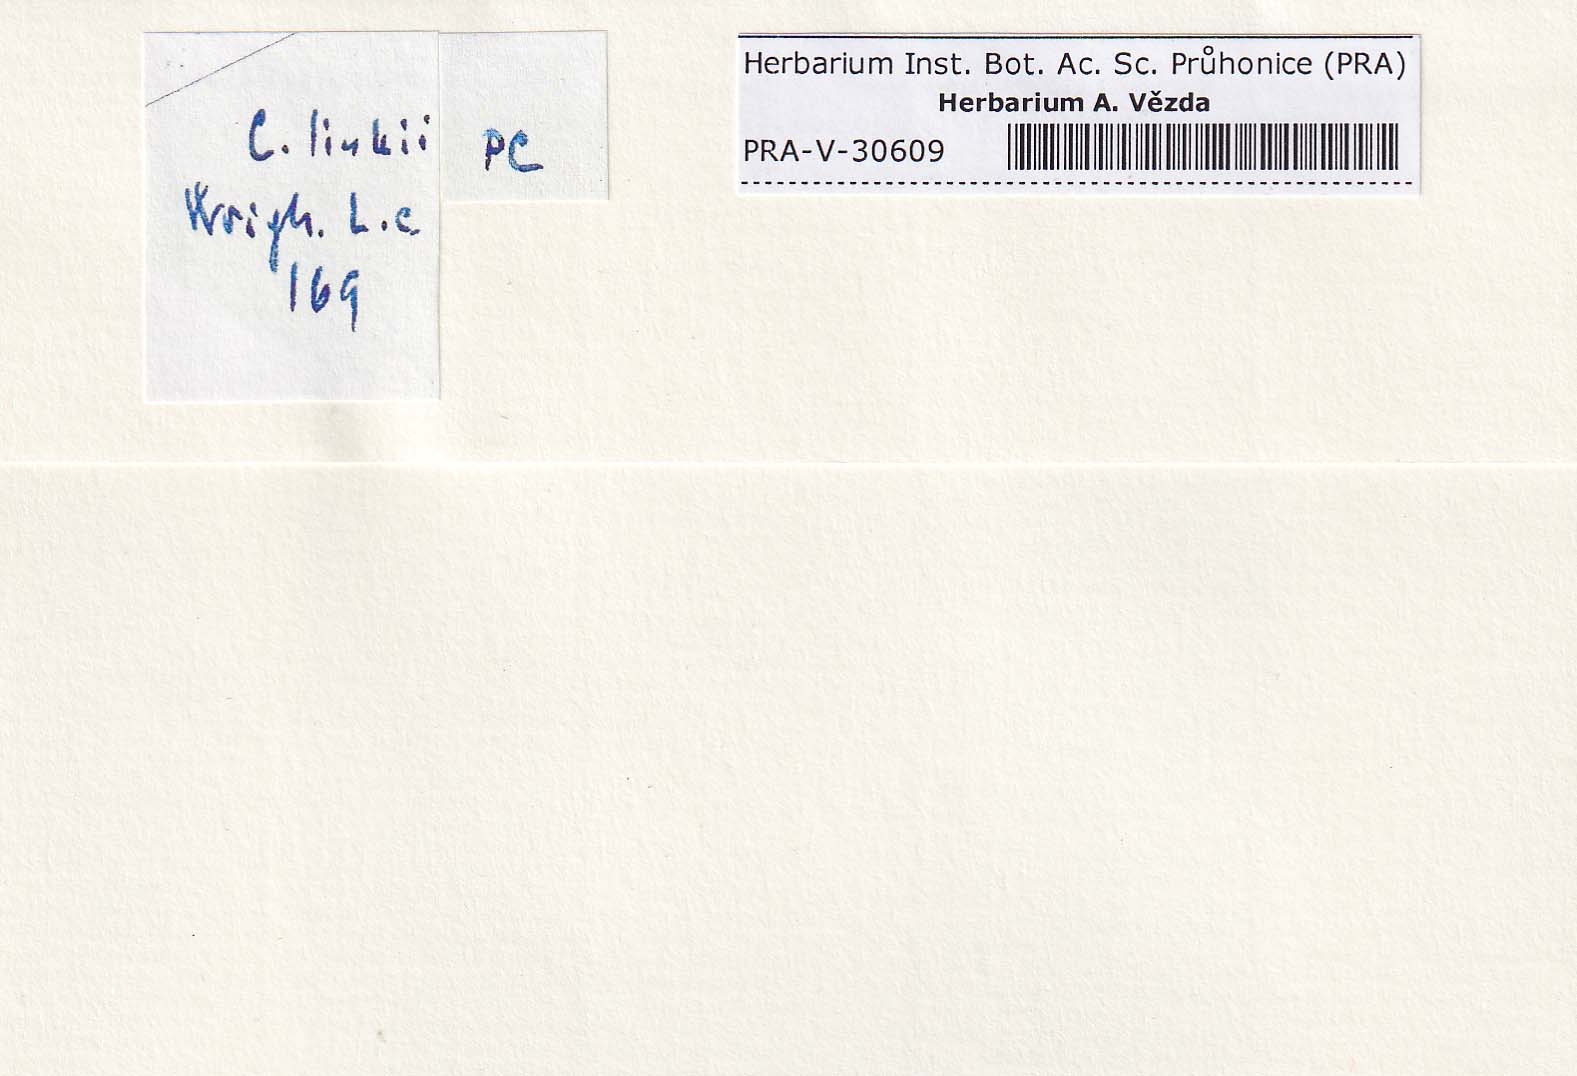 C. linkii
Wrigh. L.c
169
PC
Herbarium Inst. Bot. Ac. Sc. Průhonice (PRA)
Herbarium A. Vězda
PRA-V-30609